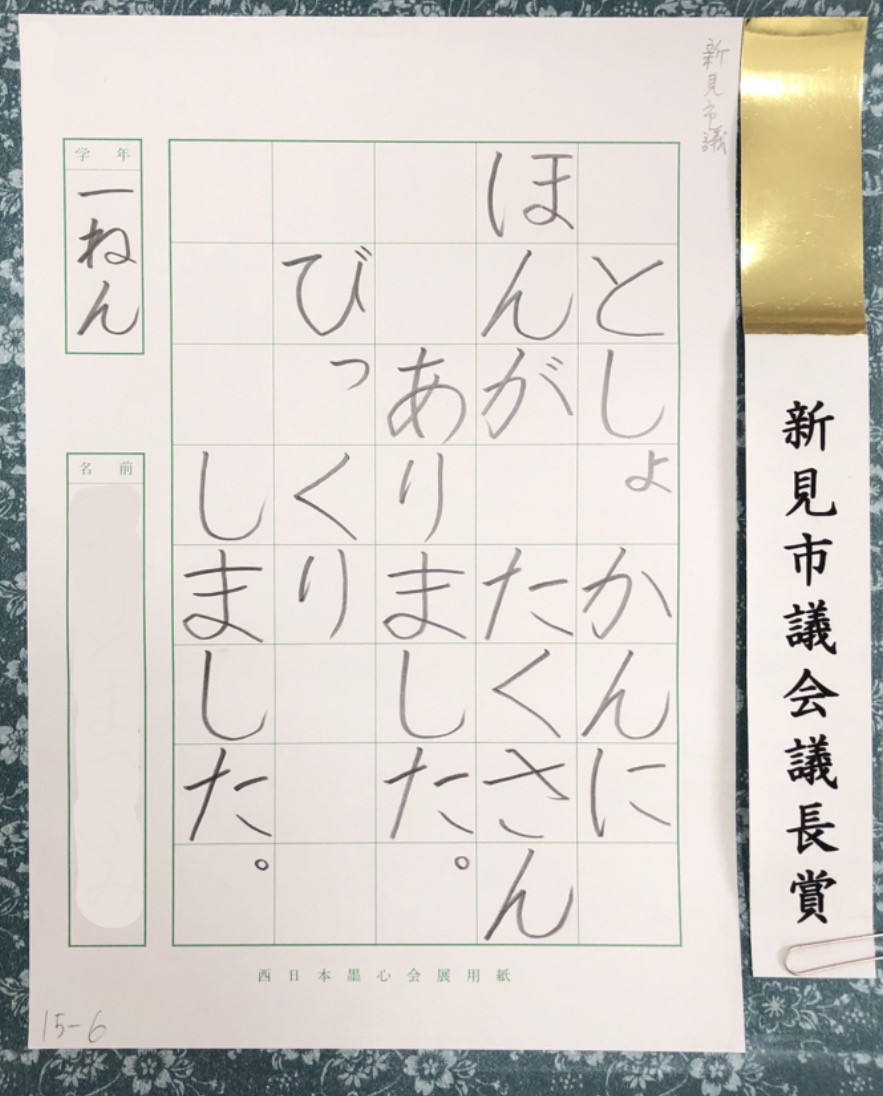 新見市議会議長賞
新見市議
としょかんに
ほんが たくさん
ありました。
びっくり
しました。
学年
一ねん
名前
西日本墨心会展用紙
15-6